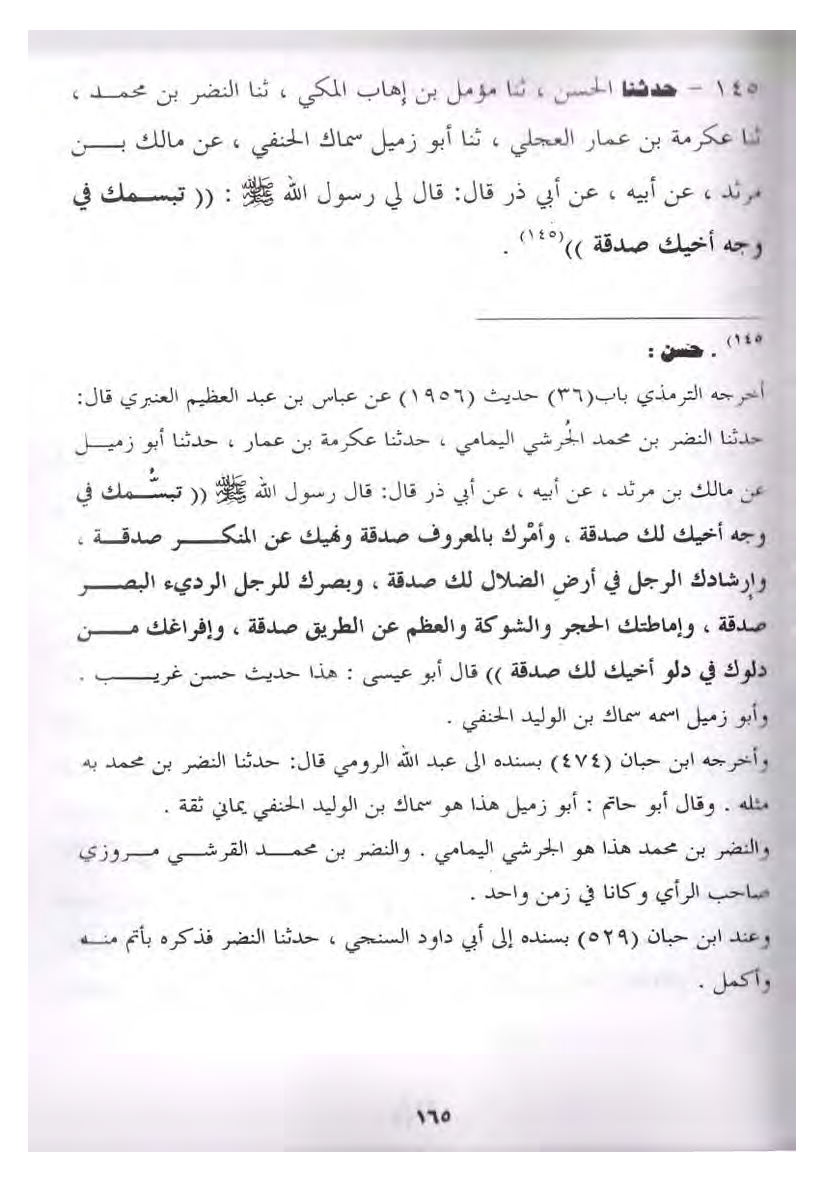 ١٤٥ – حدثنا الحسن ، ثنا مؤمل بن إهاب المكي ، ثنا النضر بن محمد ،
ثنا عكرمة بن عمار العجلي ، ثنا أبو زميل سماك الحنفي ، عن مالك بن
مرثد ، عن أبيه ، عن أبي ذر قال: قال لي رسول الله ﷺ : (( تبسمك في
وجه أخيك صدقة ))(١٤٥) .
١٤٥) . حسن :
أخرجه الترمذي باب(٣٦) حديث (١٩٥٦) عن عباس بن عبد العظيم العنبري قال:
حدثنا النضر بن محمد الجُرشي اليمامي ، حدثنا عكرمة بن عمار ، حدثنا أبو زميل
عن مالك بن مرثد ، عن أبيه ، عن أبي ذر قال: قال رسول الله ﷺ (( تبسُّمك في
وجه أخيك لك صدقة ، وأمْرك بالمعروف صدقة ونهيك عن المنكر صدقة ،
وإرشادك الرجل في أرضِ الضلال لك صدقة ، وبصرك للرجل الرديء البصر
صدقة ، وإماطتك الحجر والشوكة والعظم عن الطريق صدقة ، وإفراغك من
دلوك في دلو أخيك لك صدقة )) قال أبو عيسى : هذا حديث حسن غريب .
وأبو زميل اسمه سماك بن الوليد الحنفي .
وأخرجه ابن حبان (٤٧٤) بسنده الى عبد الله الرومي قال: حدثنا النضر بن محمد به
مثله . وقال أبو حاتم : أبو زميل هذا هو سماك بن الوليد الحنفي يماني ثقة .
والنضر بن محمد هذا هو الجرشي اليمامي . والنضر بن محمد القرشي مروزي
صاحب الرأي وكانا في زمن واحد .
وعند ابن حبان (٥٢٩) بسنده إلى أبي داود السنجي ، حدثنا النضر فذكره بأتم منه
وأكمل .
١٦٥